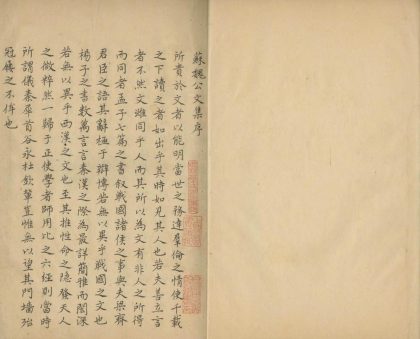 蘇魏公文集序
所貴於文者以能明當世之務達羣倫之情使千載
之下讀之者如出乎其時如見其人也若夫善立言
者不然文雖同乎人而其所以為文有非人之所得
而同者孟子七篇之書叙戰國諸侯之事與夫梁齊
君臣之語其辭極于辯博若無以異乎戰國之文也
揚子之書數萬言言秦漢之際為最詳簡雅而閎深
若無以異乎西漢之文也至其推性命之隐發天人
之微粹然一歸于正使學者師用比之六經則當時
所謂儀秦犀首谷永杜欽輩豈惟無以望其門墻殆
冠履之不侔也